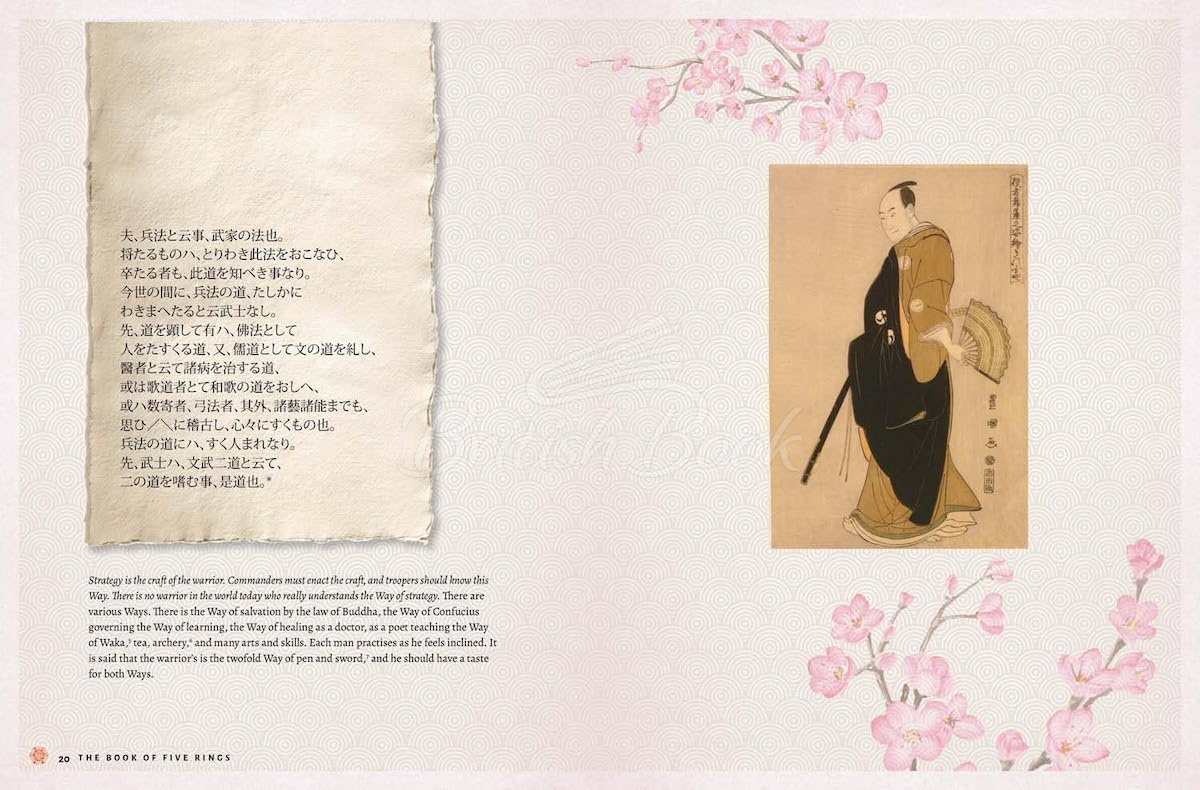 夫、兵法と云事、武家の法也。
将たるものハ、とりわき此法をおこなひ、
卒たる者も、此道を知べき事なり。
今世の間に、兵法の道、たしかに
わきまへたると云武士なし。
先、道を顕して有ハ、佛法として
人をたすくる道、又、儒道として文の道を糺し、
醫者と云て諸病を治する道、
或は歌道者とて和歌の道をおしへ、
或ハ数寄者、弓法者、其外、諸藝諸能までも、
思ひ／＼に稽古し、心々にすくもの也。
兵法の道にハ、すく人まれなり。
先、武士ハ、文武二道と云て、
二の道を嗜む事、是道也。*
Strategy is the craft of the warrior. Commanders must enact the craft, and troopers should know this
Way. There is no warrior in the world today who really understands the Way of strategy. There are
various Ways. There is the Way of salvation by the law of Buddha, the Way of Confucius
governing the Way of learning, the Way of healing as a doctor, as a poet teaching the Way
of Waka,⁵ tea, archery,⁶ and many arts and skills. Each man practises as he feels inclined. It
is said that the warrior's is the twofold Way of pen and sword,⁷ and he should have a taste
for both Ways.
20 THE BOOK OF FIVE RINGS
豊國画